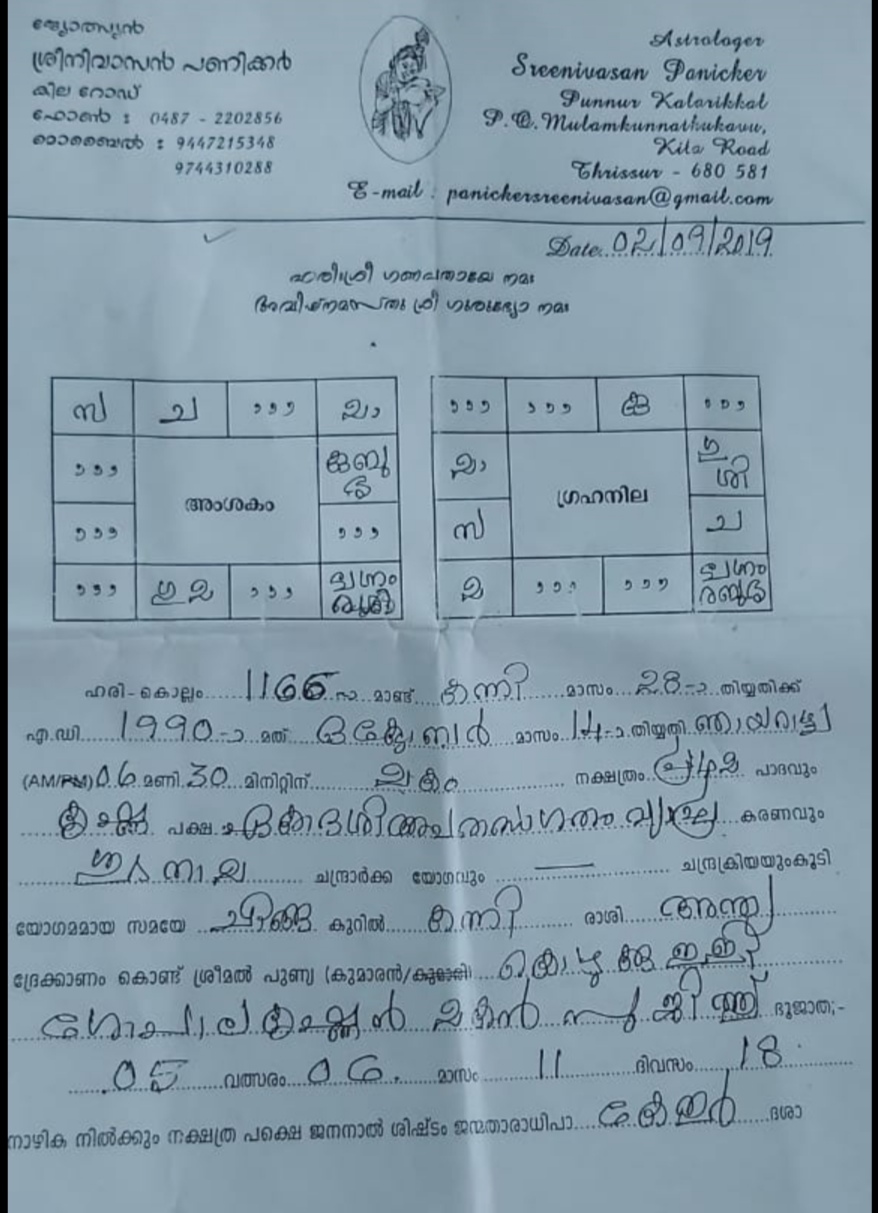 ജ്യോത്സ്യൻ
ശ്രീനിവാസൻ പണിക്കർ
കില റോഡ്
ഫോൺ : 0487 - 2202856
മൊബൈൽ : 9447215348
9744310288
Astrologer
Sreenivasan Panicker
Punnur Kalarikkal
P.O. Mulamkunnathukavu,
Kila Road
Thrissur - 680 581
E-mail : panickersreenivasan@gmail.com
Date: 02/09/2019
ഹരിഃശ്രീ ഗണപതായേ നമഃ
അവിഘ്നമസ്തു ശ്രീ ഗുരുഭ്യോ നമഃ
സ ച ,,, മാ
,,,
അംശകം
,,, ,,,
,,, ,,,
,,, ,,, ,,,
മാ
ഗ്രഹനില
ശി
സ ച
,,, ,,,
ഹരി-കൊല്ലം 1166 മാണ്ട് കന്നി മാസം 28-ാ തിയ്യതിക്ക്
എ.ഡി 1990-ാ മത് ഒക്ടോബർ മാസം 14-ാ തിയ്യതി ഞായറാഴ്ച
(AM/PM) 06 മണി 30 മിനിറ്റിന് മകം നക്ഷത്രം പാദവും
കൃഷ്ണ പക്ഷ ഏകാദശി കരണവും
ചന്ദ്രാർക്ക യോഗവും — ചന്ദ്രക്രിയയുംകൂടി
യോഗമമായ സമയേ ചിങ്ങ കൂറിൽ കന്നി രാശി അന്ത്യ
ദ്രേക്കാണം കൊണ്ട് ശ്രീമൽ പുണ്യ (കുമാരൻ/കുമാരി)
ഗോപാലകൃഷ്ണൻ മകൻ സുജിത്ത് ഭൂജാത;-
05 വത്സരം 06 മാസം 11 ദിവസം 18
നാഴിക നിൽക്കും നക്ഷത്ര പക്ഷെ ജനനാൽ ശിഷ്ടം ജന്മതാരാധിപാ കേതുർ ദശാ